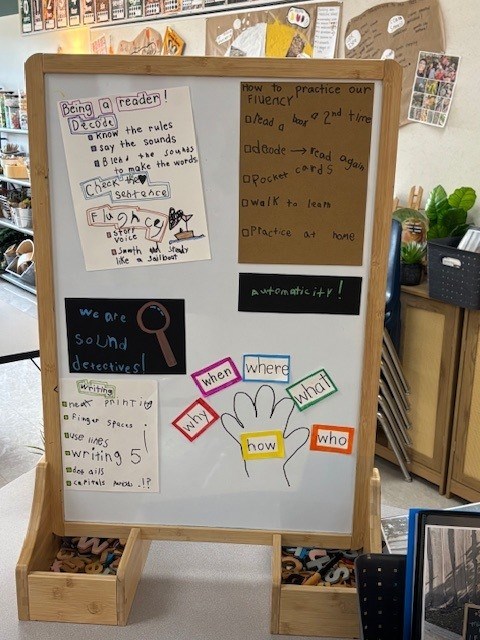 Being a reader!
Decode
Know the rules
say the sounds
Blend the sounds
to make the words
Check the
sentence
Fluence
story
voice
smoth and steady
like a sailboat
How to practice our
Fluency
Read a book a 2nd time
decode → read again
Pocket cards
walk to learn
Practice at home
automaticity!
we are
sound
detectives!
writing
neat printing
finger spaces
use lines
writing 5
details
capitals .!?
when
where
what
why
how
who